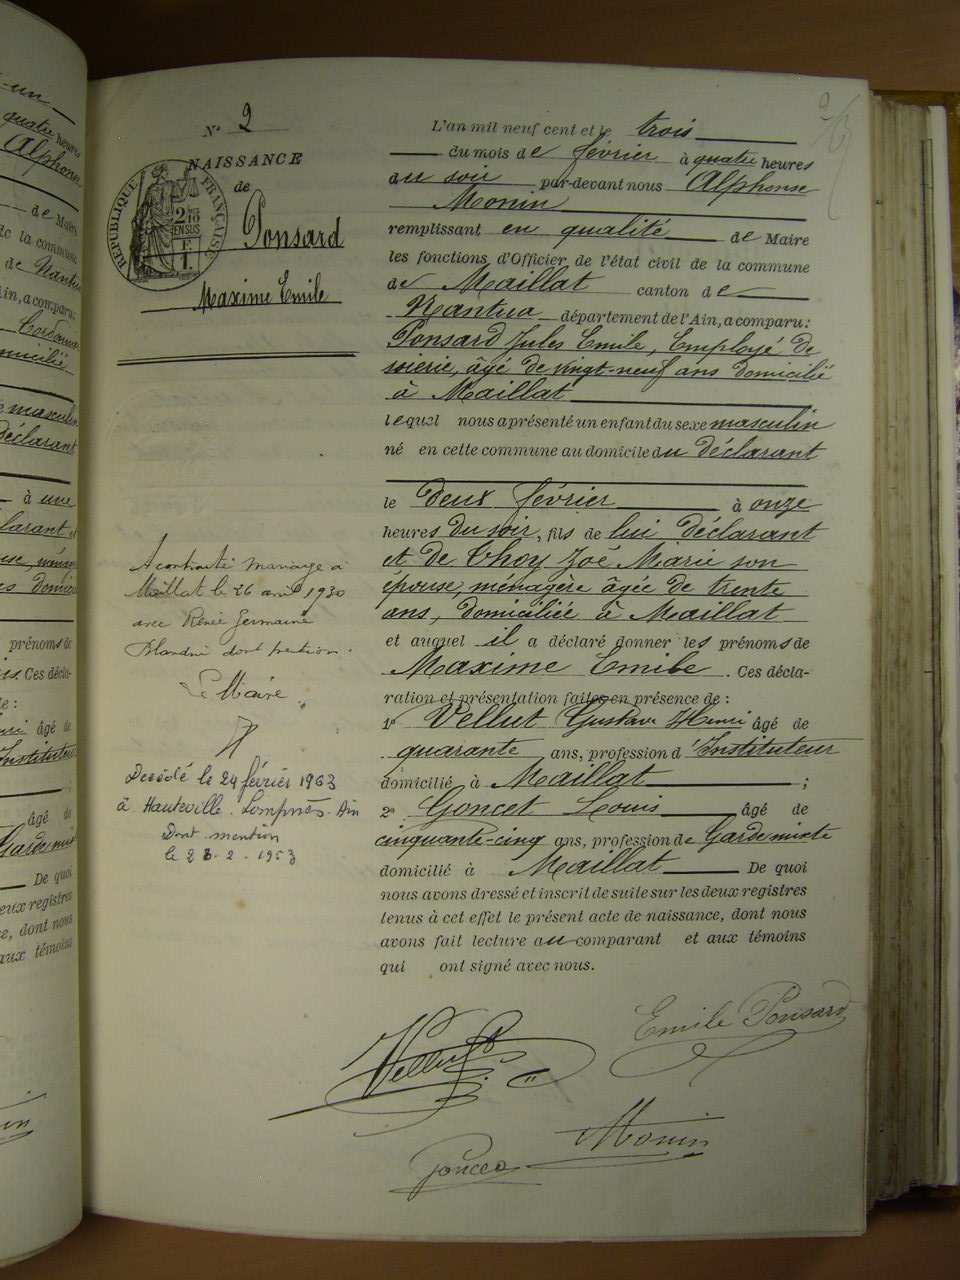 un
quatre heures
Alphonse
de Maire
la commune
de Nantua
Ain, a comparu:
domicilié
masculin
déclarant
à une
déclarant et
domici
prénoms de
Ces décla-
de:
âgé de
Instituteur
âgé de
Garde mixte
De quoi
deux registres
dont nous
aux témoins
Nº 2
NAISSANCE
de
RÉPUBLIQUE FRANÇAISE
Ponsard
Maxime Emile
L'an mil neuf cent et le trois
du mois de février à quatre heures
du soir par-devant nous Alphonse
Monin
remplissant en qualité de Maire
les fonctions d'Officier de l'état civil de la commune
de Maillat canton de
Nantua département de l'Ain, a comparu:
Ponsard Jules Emile, Employé de
soierie, âgé de vingt-neuf ans domicilié
à Maillat
lequel nous a présenté un enfant du sexe masculin
né en cette commune au domicile du déclarant
le deux février à onze
heures du soir, fils de lui déclarant
et de Thoy Zoé Marie son
épouse, ménagère âgée de trente
ans, domiciliée à Maillat
et auquel il a déclaré donner les prénoms de
Maxime Emile. Ces décla-
ration et présentation faites en présence de:
1º Vellut Gustave Henri âgé de
quarante ans, profession d'Instituteur
domicilié à Maillat ;
2º Goncet Louis âgé de
cinquante-cinq ans, profession de Garde mixte
domicilié à Maillat De quoi
nous avons dressé et inscrit de suite sur les deux registres
tenus à cet effet le présent acte de naissance, dont nous
avons fait lecture au comparant et aux témoins
qui ont signé avec nous.
A contracté mariage à
Maillat le 26 avril 1930
avec Renée Germaine
dont mention.
Le Maire
Décédé le 24 février 1963
à Hauteville-Lompnes-Ain
Dont mention
le 2-1963
Emile Ponsard
Vellut
Monin
Goncet